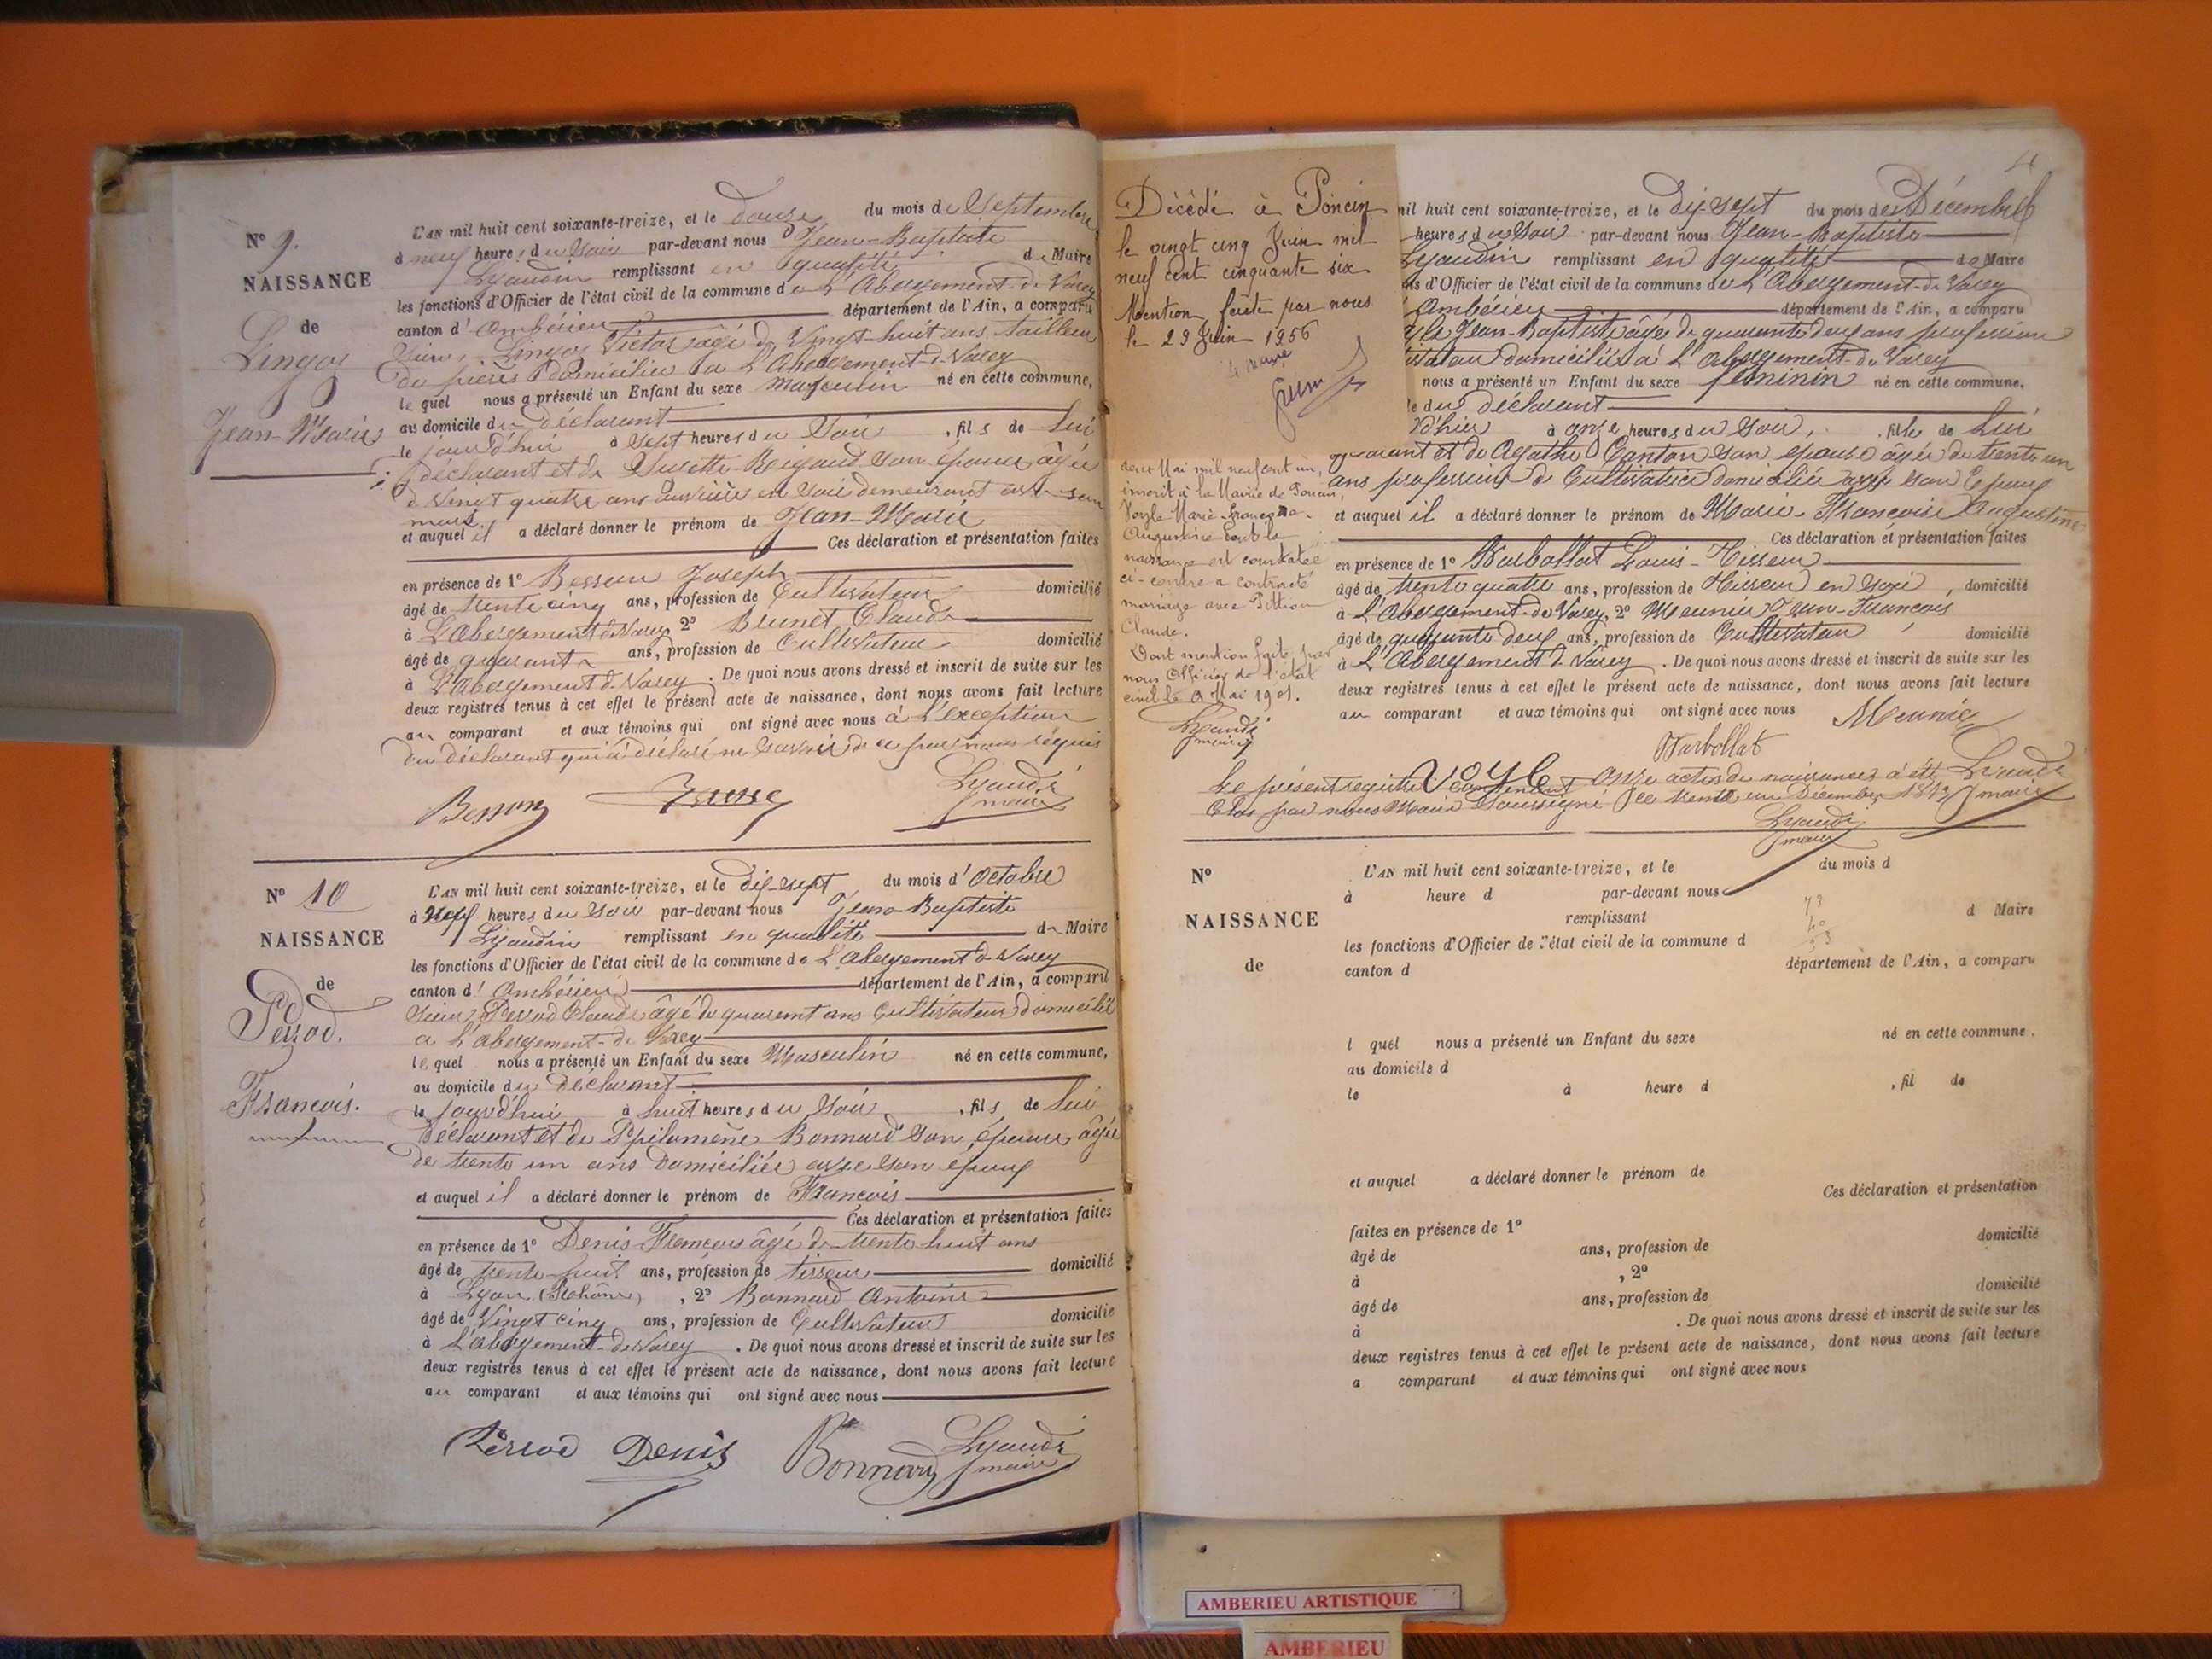 N° 9.
NAISSANCE
de
Lingos
Jean-Marie
L'AN mil huit cent soixante-treize, et le douze du mois de Septembre
à neuf heures du Soir par-devant nous Jean-Baptiste
Lyaudin remplissant en qualité de Maire
les fonctions d'Officier de l'état civil de la commune de L'Abergement-de-Varey
canton d'Ambérieu département de l'Ain, a comparu
Sieur Lingos Victor âgé de Vingt-huit ans tailleur
de pierres domicilié à L'Abergement-de-Varey
lequel nous a présenté un Enfant du sexe masculin né en cette commune,
au domicile du déclarant
le jourd'hui à sept heures du Soir, fils de lui
déclarant et de Susette Rigaud son épouse âgée
de vingt quatre ans ouvrière en soie demeurant avec son
mari
et auquel il a déclaré donner le prénom de Jean-Marie
Ces déclaration et présentation faites
en présence de 1° Besson Joseph
âgé de trente cinq ans, profession de Cultivateur domicilié
à L'Abergement-de-Varey 2° Brunet Claude
âgé de quarante ans, profession de Cultivateur domicilié
à L'Abergement-de-Varey. De quoi nous avons dressé et inscrit de suite sur les
deux registres tenus à cet effet le présent acte de naissance, dont nous avons fait lecture
au comparant et aux témoins qui ont signé avec nous à L'exception
du déclarant qui a déclaré ne savoir de ce par nous requis
Besson Lyaudin
maire
N° 10
NAISSANCE
de
Perrod.
François.
L'AN mil huit cent soixante-treize, et le dix-sept du mois d'Octobre
à neuf heures du Soir par-devant nous Jean-Baptiste
Lyaudin remplissant en qualité de Maire
les fonctions d'Officier de l'état civil de la commune de L'Abergement-de-Varey
canton d'Ambérieu département de l'Ain, a comparu
Sieur Perrod Claude âgé de quarant ans Cultivateur domicilié
à L'Abergement-de-Varey
lequel nous a présenté un Enfant du sexe Masculin né en cette commune,
au domicile du déclarant
le jourd'hui à huit heures du Soir, fils de lui
déclarant et de Philomène Bonnard son épouse âgée
de trente un ans domiciliée avec son époux
et auquel il a déclaré donner le prénom de François
Ces déclaration et présentation faites
en présence de 1° Denis François âgé de trente huit ans
âgé de trente-huit ans, profession de tisseur domicilié
à Lyon (Rhône), 2° Bonnard Antoine
âgé de Vingt cinq ans, profession de Cultivateur domicilié
à L'Abergement-de-Varey. De quoi nous avons dressé et inscrit de suite sur les
deux registres tenus à cet effet le présent acte de naissance, dont nous avons fait lecture
au comparant et aux témoins qui ont signé avec nous
Perrod Denis Bonnard Lyaudin
maire
Décédé à Poncin
le vingt cinq Juin mil
neuf cent cinquante six
Mention faite par nous
le 29 Juin 1956
le maire
deux Mai mil neuf cent un,
inscrit à la Mairie de Poncin,
Voyle Marie Françoise
Augustine dont la
naissance est constatée
ci-contre a contracté
mariage avec Pittion
Claude.
Dont mention faite par
nous Officier de l'état
civil le 9 Mai 1901.
maire
mil huit cent soixante-treize, et le dix-sept du mois de Décembre
heures du Soir par-devant nous Jean-Baptiste
Lyaudin remplissant en qualité de Maire
d'Officier de l'état civil de la commune de L'Abergement-de-Varey
Ambérieu département de l'Ain, a comparu
Jean-Baptiste âgé de quarante deux ans profession
domicilié à L'Abergement-de-Varey
nous a présenté un Enfant du sexe féminin né en cette commune,
du déclarant
d'hier à onze heures du Soir, fille de lui
et de Agathe Canton son épouse âgée de trente un
ans profession de Cultivatrice domiciliée avec son Epoux
et auquel il a déclaré donner le prénom de Marie-Françoise Augustine
Ces déclaration et présentation faites
en présence de 1° Barbollat Louis-Tisseur
âgé de trente quatre ans, profession de Tisseur en Soie, domicilié
à L'Abergement-de-Varey, 2° Meunier Jean-François
âgé de quarante deux ans, profession de Cultivateur domicilié
à L'Abergement-de-Varey. De quoi nous avons dressé et inscrit de suite sur les
deux registres tenus à cet effet le présent acte de naissance, dont nous avons fait lecture
au comparant et aux témoins qui ont signé avec nous Meunier
Barbollat
Voyle
Le présent registre Contenant Onze actes de naissances a été
Clos par nous Maire soussigné ce trente un Décembre 1873
Lyaudin
maire
N°
NAISSANCE
de
L'AN mil huit cent soixante-treize, et le du mois d
à heure d par-devant nous
remplissant d Maire
les fonctions d'Officier de l'état civil de la commune d
canton d département de l'Ain, a comparu
l quel nous a présenté un Enfant du sexe né en cette commune.
au domicile d
le à heure d , fil de
et auquel a déclaré donner le prénom de
Ces déclaration et présentation
faites en présence de 1°
âgé de ans, profession de domicilié
à , 2°
âgé de ans, profession de domicilié
à . De quoi nous avons dressé et inscrit de suite sur les
deux registres tenus à cet effet le présent acte de naissance, dont nous avons fait lecture
a comparant et aux témoins qui ont signé avec nous
AMBERIEU ARTISTIQUE
AMBERIEU